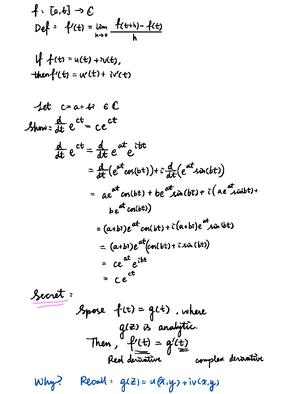 f : [a,b] → ℂ
Def = f'(t) = lim h→0 f(t+h) - f(t) / h
If f(t) = u(t) + iv(t),
then f'(t) = u'(t) + iv'(t)
Let c = a+bi ∈ ℂ
Show: d/dt e^ct = ce^ct
d/dt e^ct = d/dt e^at e^ibt
= d/dt (e^at cos(bt)) + i d/dt (e^at sin(bt))
= ae^at cos(bt) + be^at sin(bt) + i (ae^at sin(bt) +
be^at cos(bt))
= (a+bi)e^at cos(bt) + i (a+bi)e^at sin(bt)
= (a+bi)e^at (cos(bt) + i sin(bt))
= ce^at e^ibt
= ce^ct
Secret:
Spose f(t) = g(t), where
g(z) is analytic.
Then, f'(t) = g'(t)
Real derivative complex derivative
Why? Recall: g(z) = u(x,y) + iv(x,y)